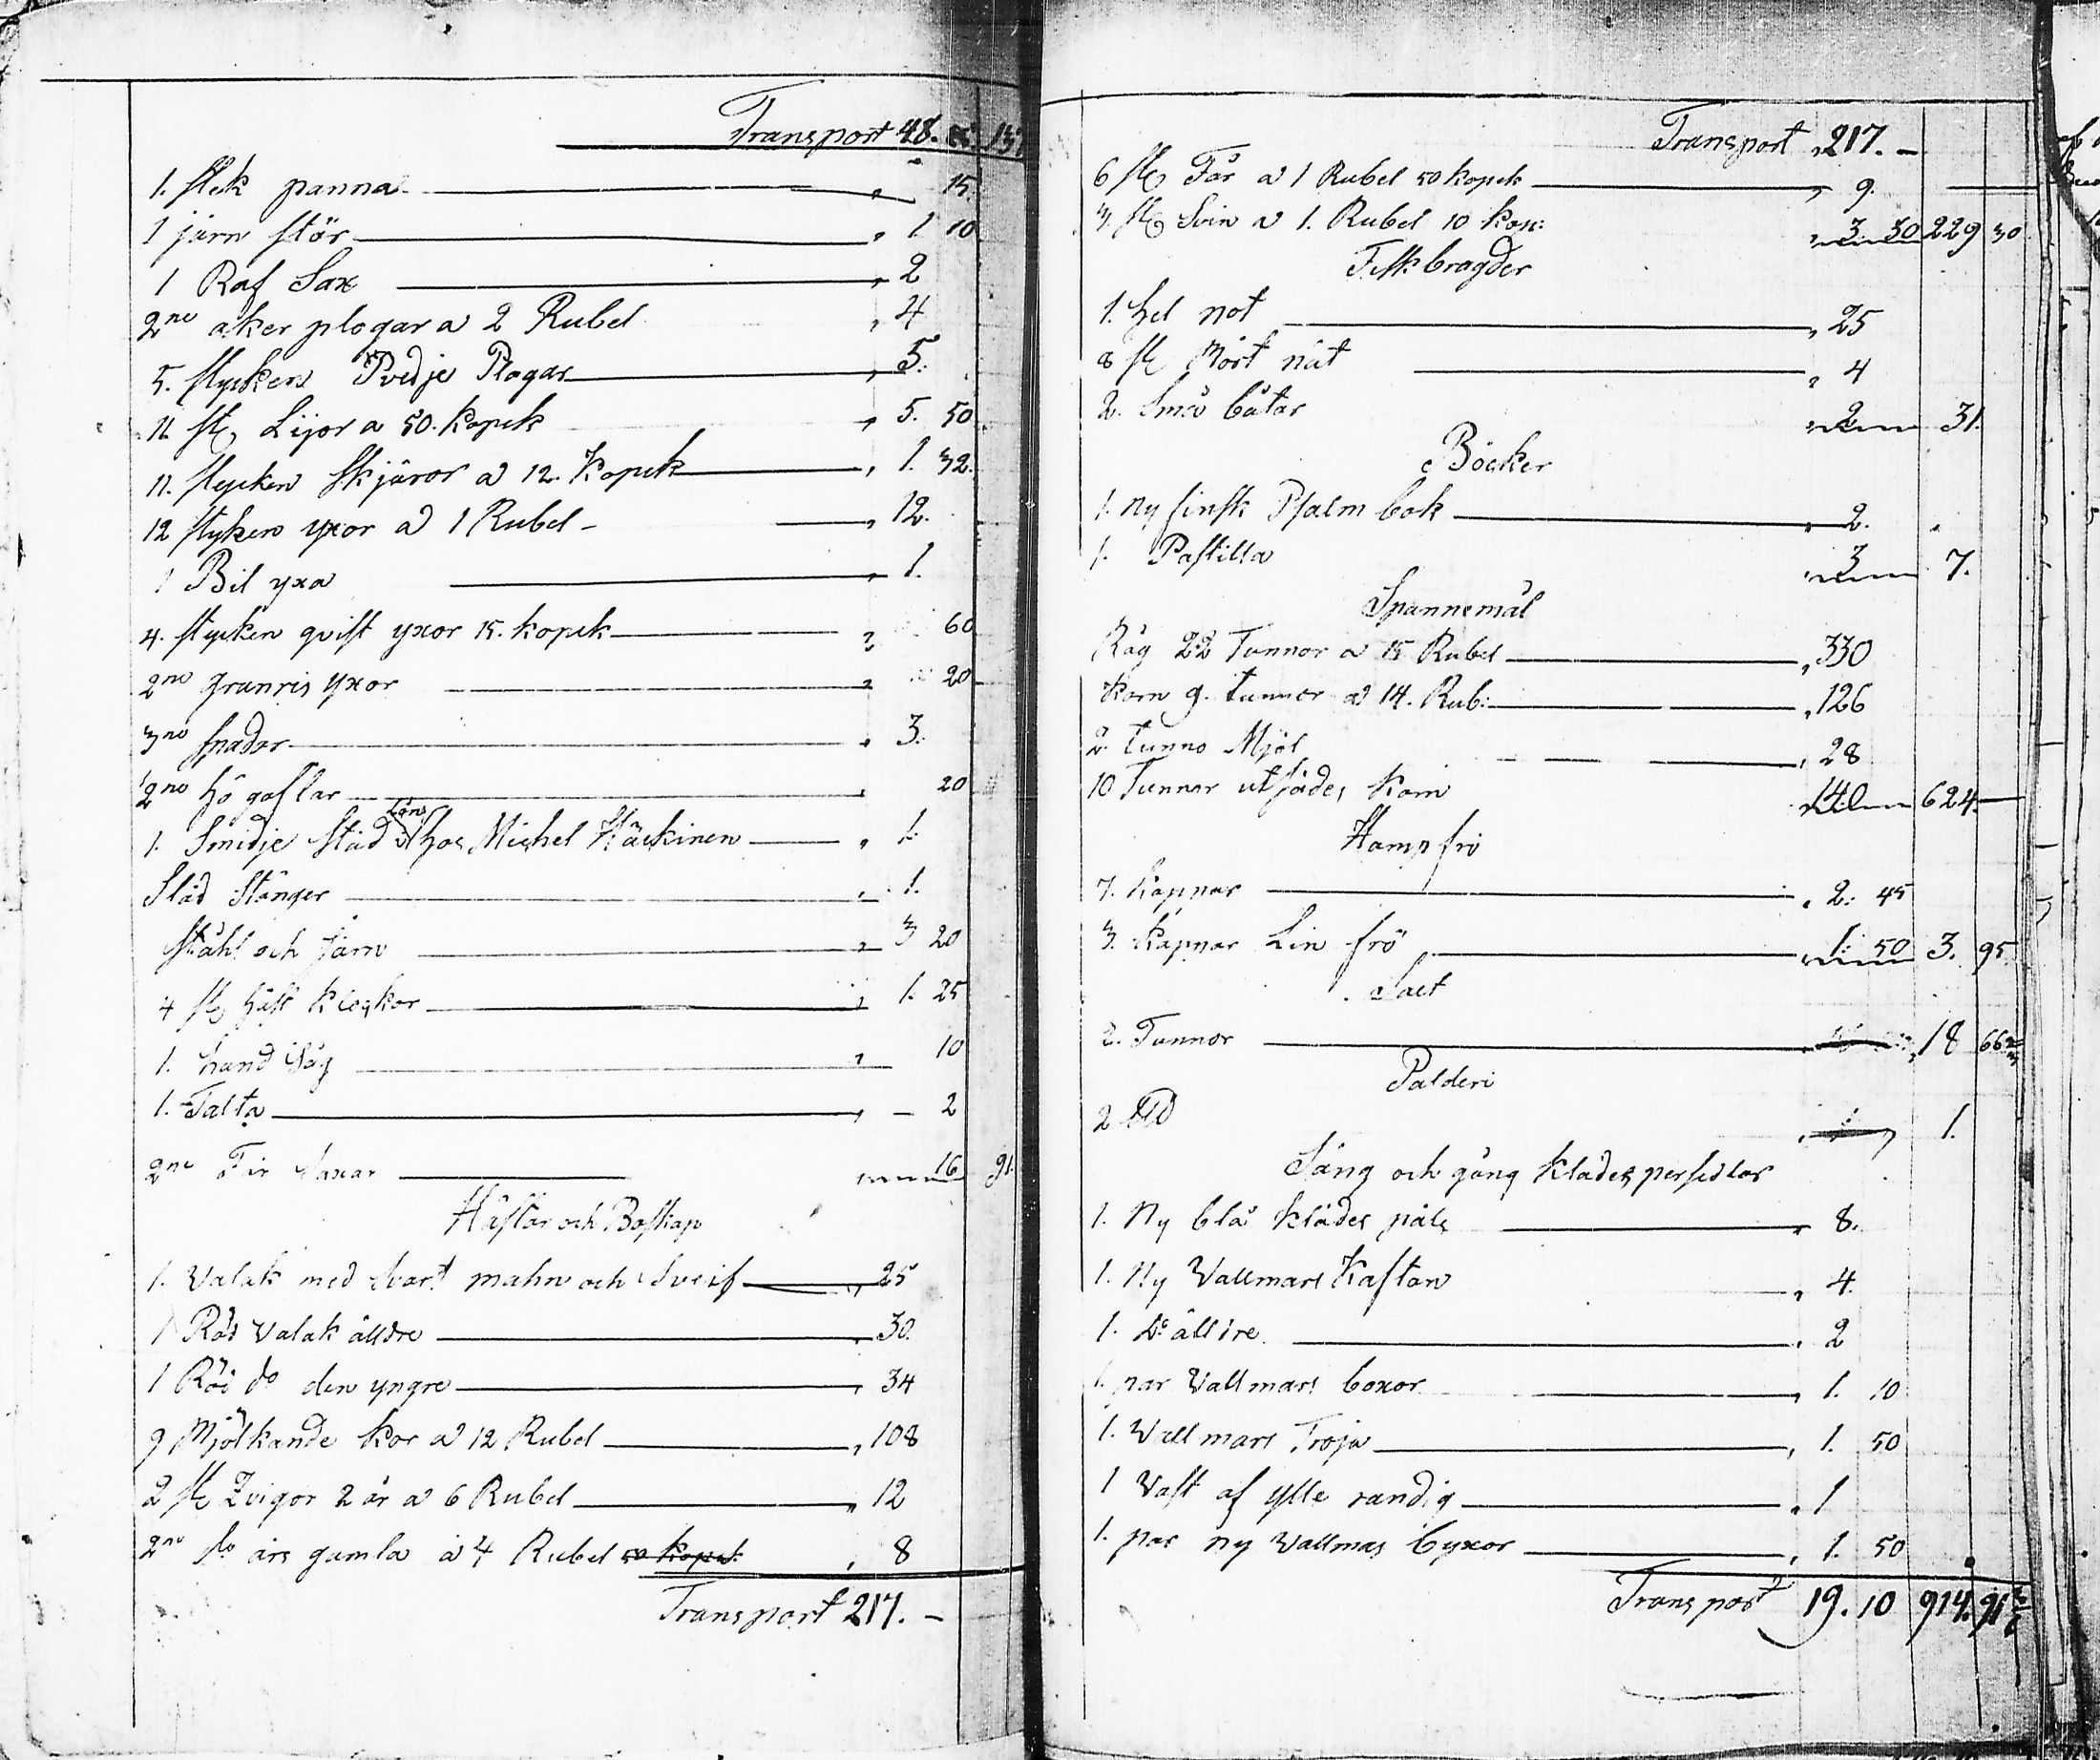 Transport 48. 137
1. stek panna 15.
1 järn stör 1 10
1 Raf Sax 2
2ne åker plogar a 2 Rubel 4
5. stycken Svedje Plogar 5.
11. st. Lijor a 50. kopek 5. 50
11. stycken Skjäror a 12. Kopek 1. 32.
12 stycken yxor a 1 Rubel 12.
1 Bil yxa 1.
4. stycken qvist yxor 15. kopek 60
2ne granris yxor 20
3ne spador 3.
2ne hö gaflar 20
1. Smidje städ i hos Michel Häckinen 1.
Släd Stänger 1.
Ståhl och Järn 3 20
4 st. häst kläckor 1. 25
1. hand såg 10
1. Talta - 2
2ne Fir Saxar 16 91.
Hästar och Boskap
1. Valak med svart mahn och Sveif 25
1 Röd Valak älldre 30.
1 Röd do den yngre 34
9 Mjölkande kor a 12 Rubel 108
2 st. Qvigor 2 år a 6 Rubel 12
2ne do års gamla a 4 Rubel 50 kopek 8
Transport 217. -
Transport 217. -
6 st. Får a 1 Rubel 50 kopek 9.
3. st. Svin a 1. Rubel 10 kop: 3. 30 229 30
Fiskbragder
1. hel not 25
8 st. Mört nät 4
2. Små båtar 2 31.
Böcker
1. ny finsk Psalm bok 2.
1. Pastilla 3 7.
Spannemål
Råg 22 Tunnor a 15 Rubel 330
Korn 9. tunnor a 14. Rub: 126
2. tunno Mjöl 28
10 Tunnor utsådes Korn 140 624 -
Hampfrö
7. Kapnar 2. 45
3. Kapnar Lin frö 1. 50 3. 95
Salt
2. Tunnor 18 66 2/3
Palderi
2 1.
Säng och gång Kladespersedlar
1. Ny blå klädes päls 8.
1. Ny Vallmars Kaftan 4.
1. Do älldre 2
1. par Vallmars boxor 1. 10
1. Wallmars Troja 1. 50
1 Vast af ylle randig 1
1. par ny Vallmas byxor 1. 50
Transport 19. 10 914. 91 2/3